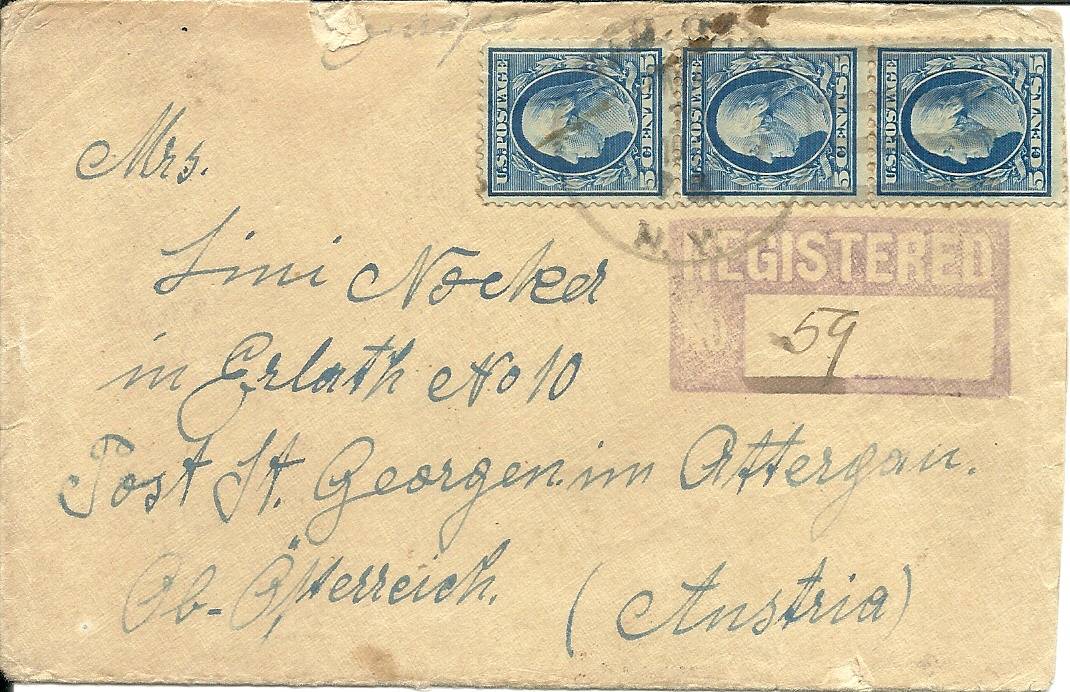 Europe
U.S. POSTAGE 5 CENTS 5
U.S. POSTAGE 5 CENTS 5
U.S. POSTAGE 5 CENTS 5
N.Y.
REGISTERED
NO. 59
Mrs.
Lini Nocker
in Erlath No 10
Post St. Georgen im Attergau.
Ob-Österreich.
(Austria)